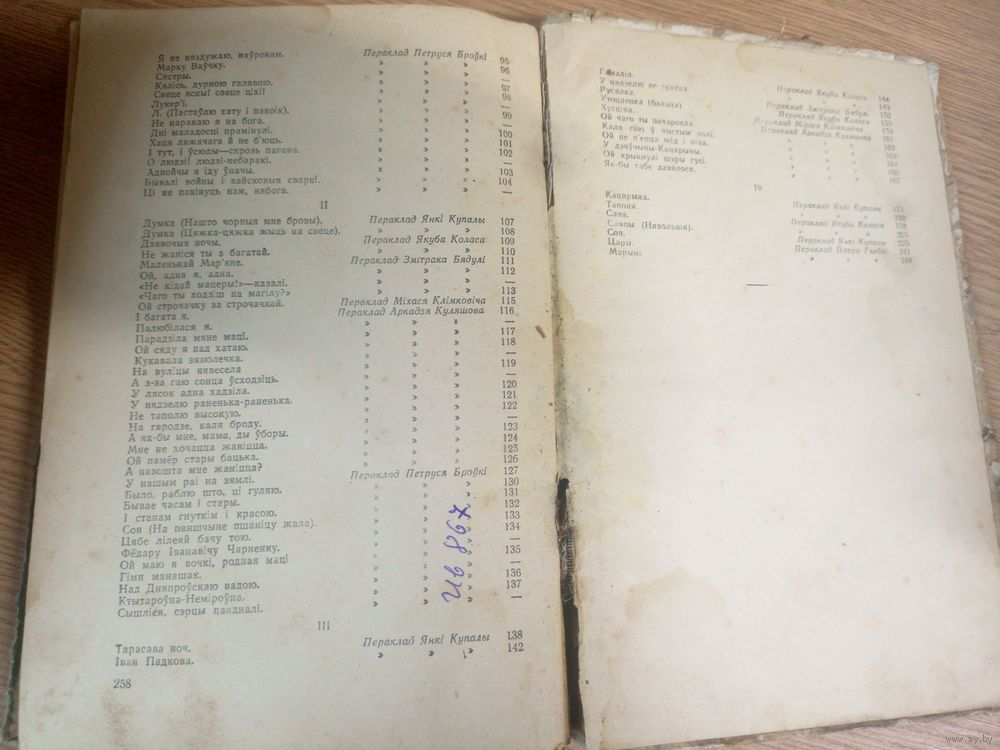 Я не нездужаю, нівроком. Пераклад Петруся Броўкі 95
Марку Ваўчку. » » » 96
Сястры. » » » —
Калісь, дурною галавою. » » » 97
Свеце ясны! свеце ціхі! » » » 98
Лукер'і. » » » —
Л. (Пастаўлю хату і пакоік). » » » 99
Не наракаю я на бога. » » » —
Дні маладосці прамінулі. » » » 100
Хаця ляжачага й не б'юць. » » » 101
І тут, і ўсюды—скрозь пагана. » » » 102
О людзі! людзі-небаракі. » » » —
Аднойчы я іду ўначы. » » » 103
Бывалі войны і вайсковыя сваркі. » » » 104
Ці не пакінуць нам, нябога. » » » —
II
Думка (Нашто чорныя мне бровы). Пераклад Янкі Купалы 107
Думка (Цяжка-цяжка жыць на свеце). » » » 108
Дзявочыя ночы. Пераклад Якуба Коласа 109
Не жаніся ты з багатай. » » » 110
Маленькай Мар'яне. Пераклад Змітрака Бядулі 111
Ой, адна я, адна. » » » 112
«Не кідай мацеры!»—казалі. » » » —
«Чаго ты ходзіш на магілу?» » » » 113
Ой строчачку за строчачкай. Пераклад Міхася Клімковіча 115
І багата я. Пераклад Аркадзя Куляшова 116
Палюбілася я. » » » —
Парадзіла мяне маці. » » » 117
Ой сяду я пад хатаю. » » » 118
Кукавала зязюлечка. » » » —
На вуліцы нявесела » » » 119
А з-за гаю сонца ўсходзіць. » » » —
У лясок адна хадзіла. » » » 120
У нядзелю раненька-раненька. » » » 121
Не таполю высокую. » » » 122
На гародзе, каля броду. » » » —
А як-бы мне, мама, ды ўборы. » » » 123
Мне не хочацца жаніцца. » » » 124
Ой памёр стары бацька. » » » 125
А навошта мне жаніцца? » » » 126
У нашым раі на зямлі. Пераклад Петруся Броўкі 127
Было, раблю што, ці гуляю. » » » 130
Бывае часам і стары. » » » 131
І станам гнуткім і красою. » » » 132
Сон (На паншчыне пшаніцу жала). » » » 133
Цябе лілеяй бачу тою. » » » 134
Фёдару Іванавічу Чарненку. » » » —
Ой маю я вочкі, родная маці » » » 135
Гімн манашак. » » » —
Над Дняпроўскаю вадою. » » » 136
Ктытароўна-Неміроўна. » » » 137
Сышліся, сэрцы паядналі. » » » —
Ив 867
III
Тарасава ноч. Пераклад Янкі Купалы 138
Іван Падкова. » » » 142
258
Гамалія. Пераклад Якуба Коласа 144
У нядзелю не гуляла. » » » 149
Русалка. Пераклад Змітрака Бядулі 152
Утопленка (балада). Пераклад Якуба Коласа
Хусціна. Пераклад Міхася Клімковіча
Ой чаго ты пачарнела Пераклад Аркадзя Куляшова 161
Каля гаю ў чыстым полі.
Ой не п'ецца мёд і піва.
У дзяўчыны-Кацярыны.
Ой крыкнулі шэры гусі.
Як-бы табе давялося.
IV
Кацярына. Пераклад Янкі Купалы 171
Таполя. » » » 192
Сава. Пераклад Якуба Коласа 198
Сляпы (Нявольнік). » » » 205
Сон. Пераклад Янкі Купалы 225
Цары. Пераклад Пятра Глебкі 241
Марыя. » » »
www.ay.by